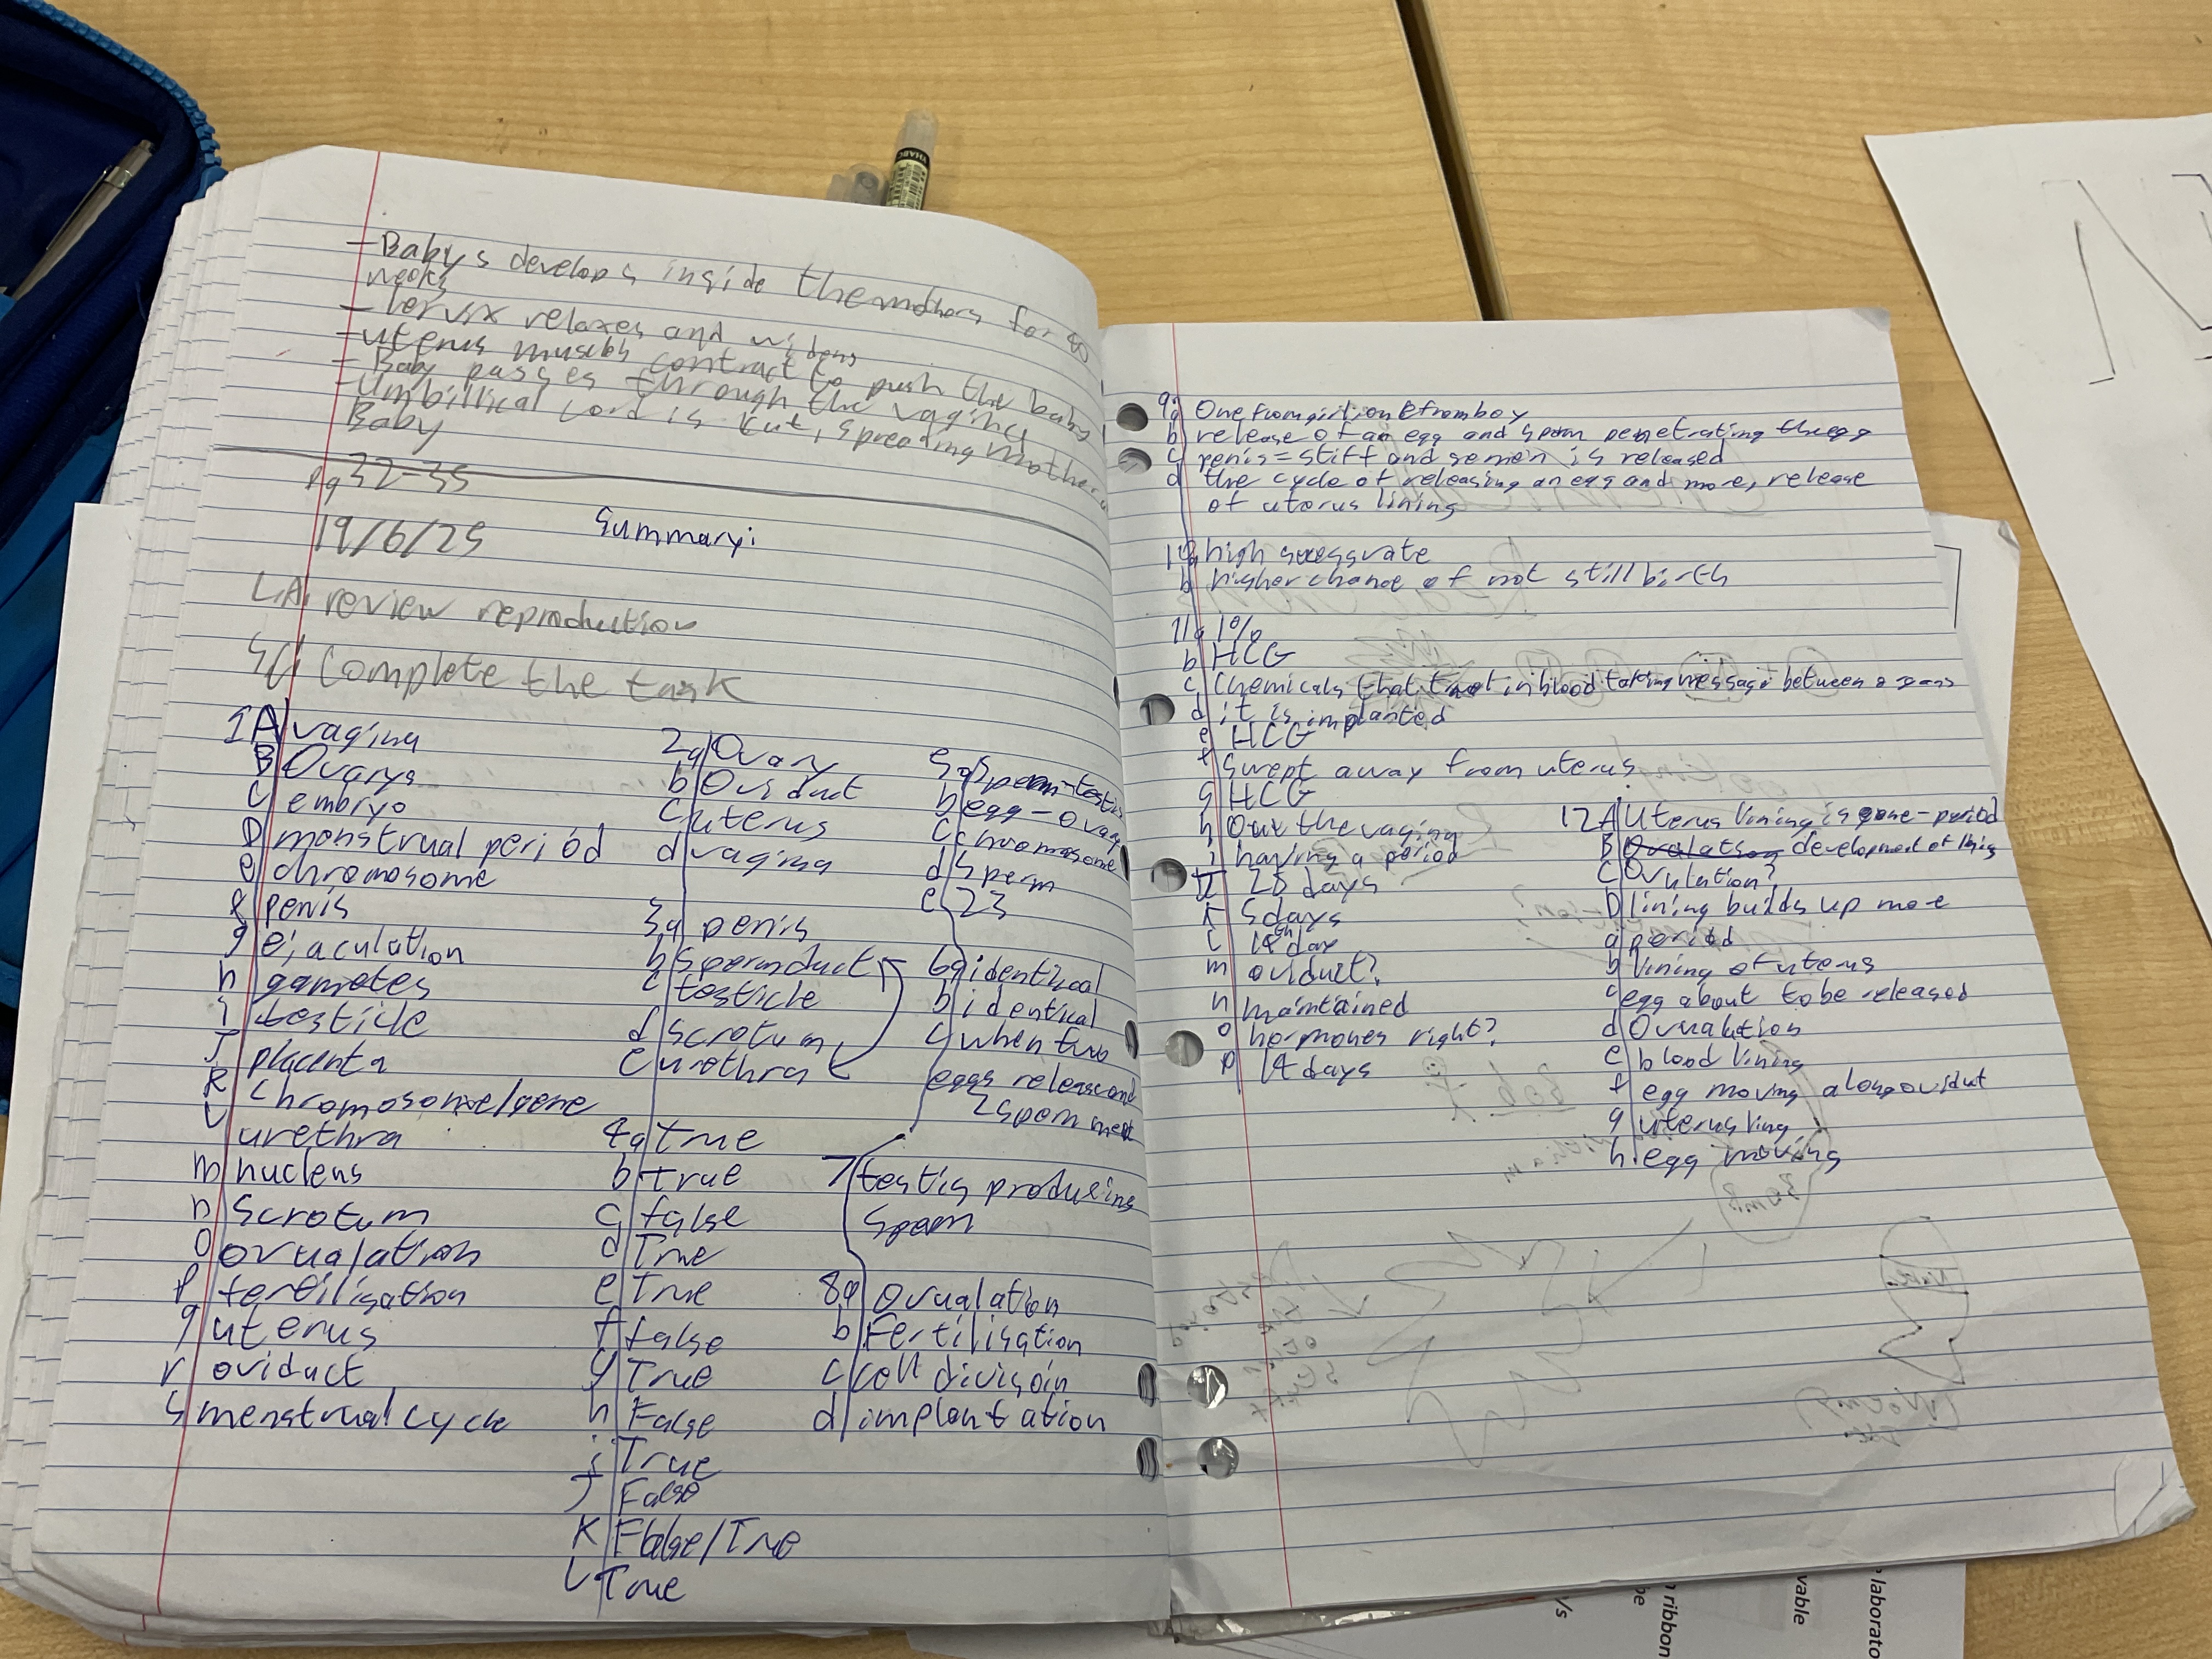 - Babys develops inside the mothers for 40
weeks
- Cervix relaxes and widens
- uterus muscles contract to push the baby
- Baby passes through the vagina
- Umbillical cord is cut, spreading mother
Baby
Pg 32-35
19/6/25 Summary:
L.A: review reproduction
SC: Complete the task
1A vagina
B Ovarys
C embryo
D monstrual period
e chromosome
f penis
g ejaculation
h gametes
i testicle
J placenta
K Chromosome/gene
L urethra
m nucleus
n Scrotum
o ovualation
p fertilisation
q uterus
r oviduct
s menstrual cycle
2a Ovary
b Oviduct
c uterus
d vagina
3a penis
b Spermduct
c testicle
d scrotum
e urethra
4a True
b True
c false
d True
e True
f false
g True
h False
i True
J False
K False/True
L True
5a Sperm-testis
b egg-ovary
c chromosome
d Sperm
e 23
6a identical
b identical
c when two
eggs release and
2 sperm meet
7 testis producing
sperm
8a Ovualation
b Fertilisation
c cell divisoin
d implantation
9a One from girl one from boy
b release of an egg and sperm penetrating the egg
c penis = stiff and semen is released
d the cycle of releasing an egg and more, release
of uterus lining
10a high success rate
b higher chance of not still birth
11a 1%
b HCG
c Chemicals that travel in blood taking message between organs
d it is implanted
e HCG
f Swept away from uterus
g HCG
h Out the vagina
i having a period
J 28 days
K 5 days
L 14th day
m oviduct?
n maintained
o hormones right?
p 14 days
12A Uterus lining is gone-period
B Ovalation development of lining
C Ovulation?
D lining builds up more
a period
b lining of uterus
c egg about to be released
d Ovualution
e blood lining
f egg moving along oviduct
g uterus ling
h egg moving
laborato
vable
ribbon
be
/s